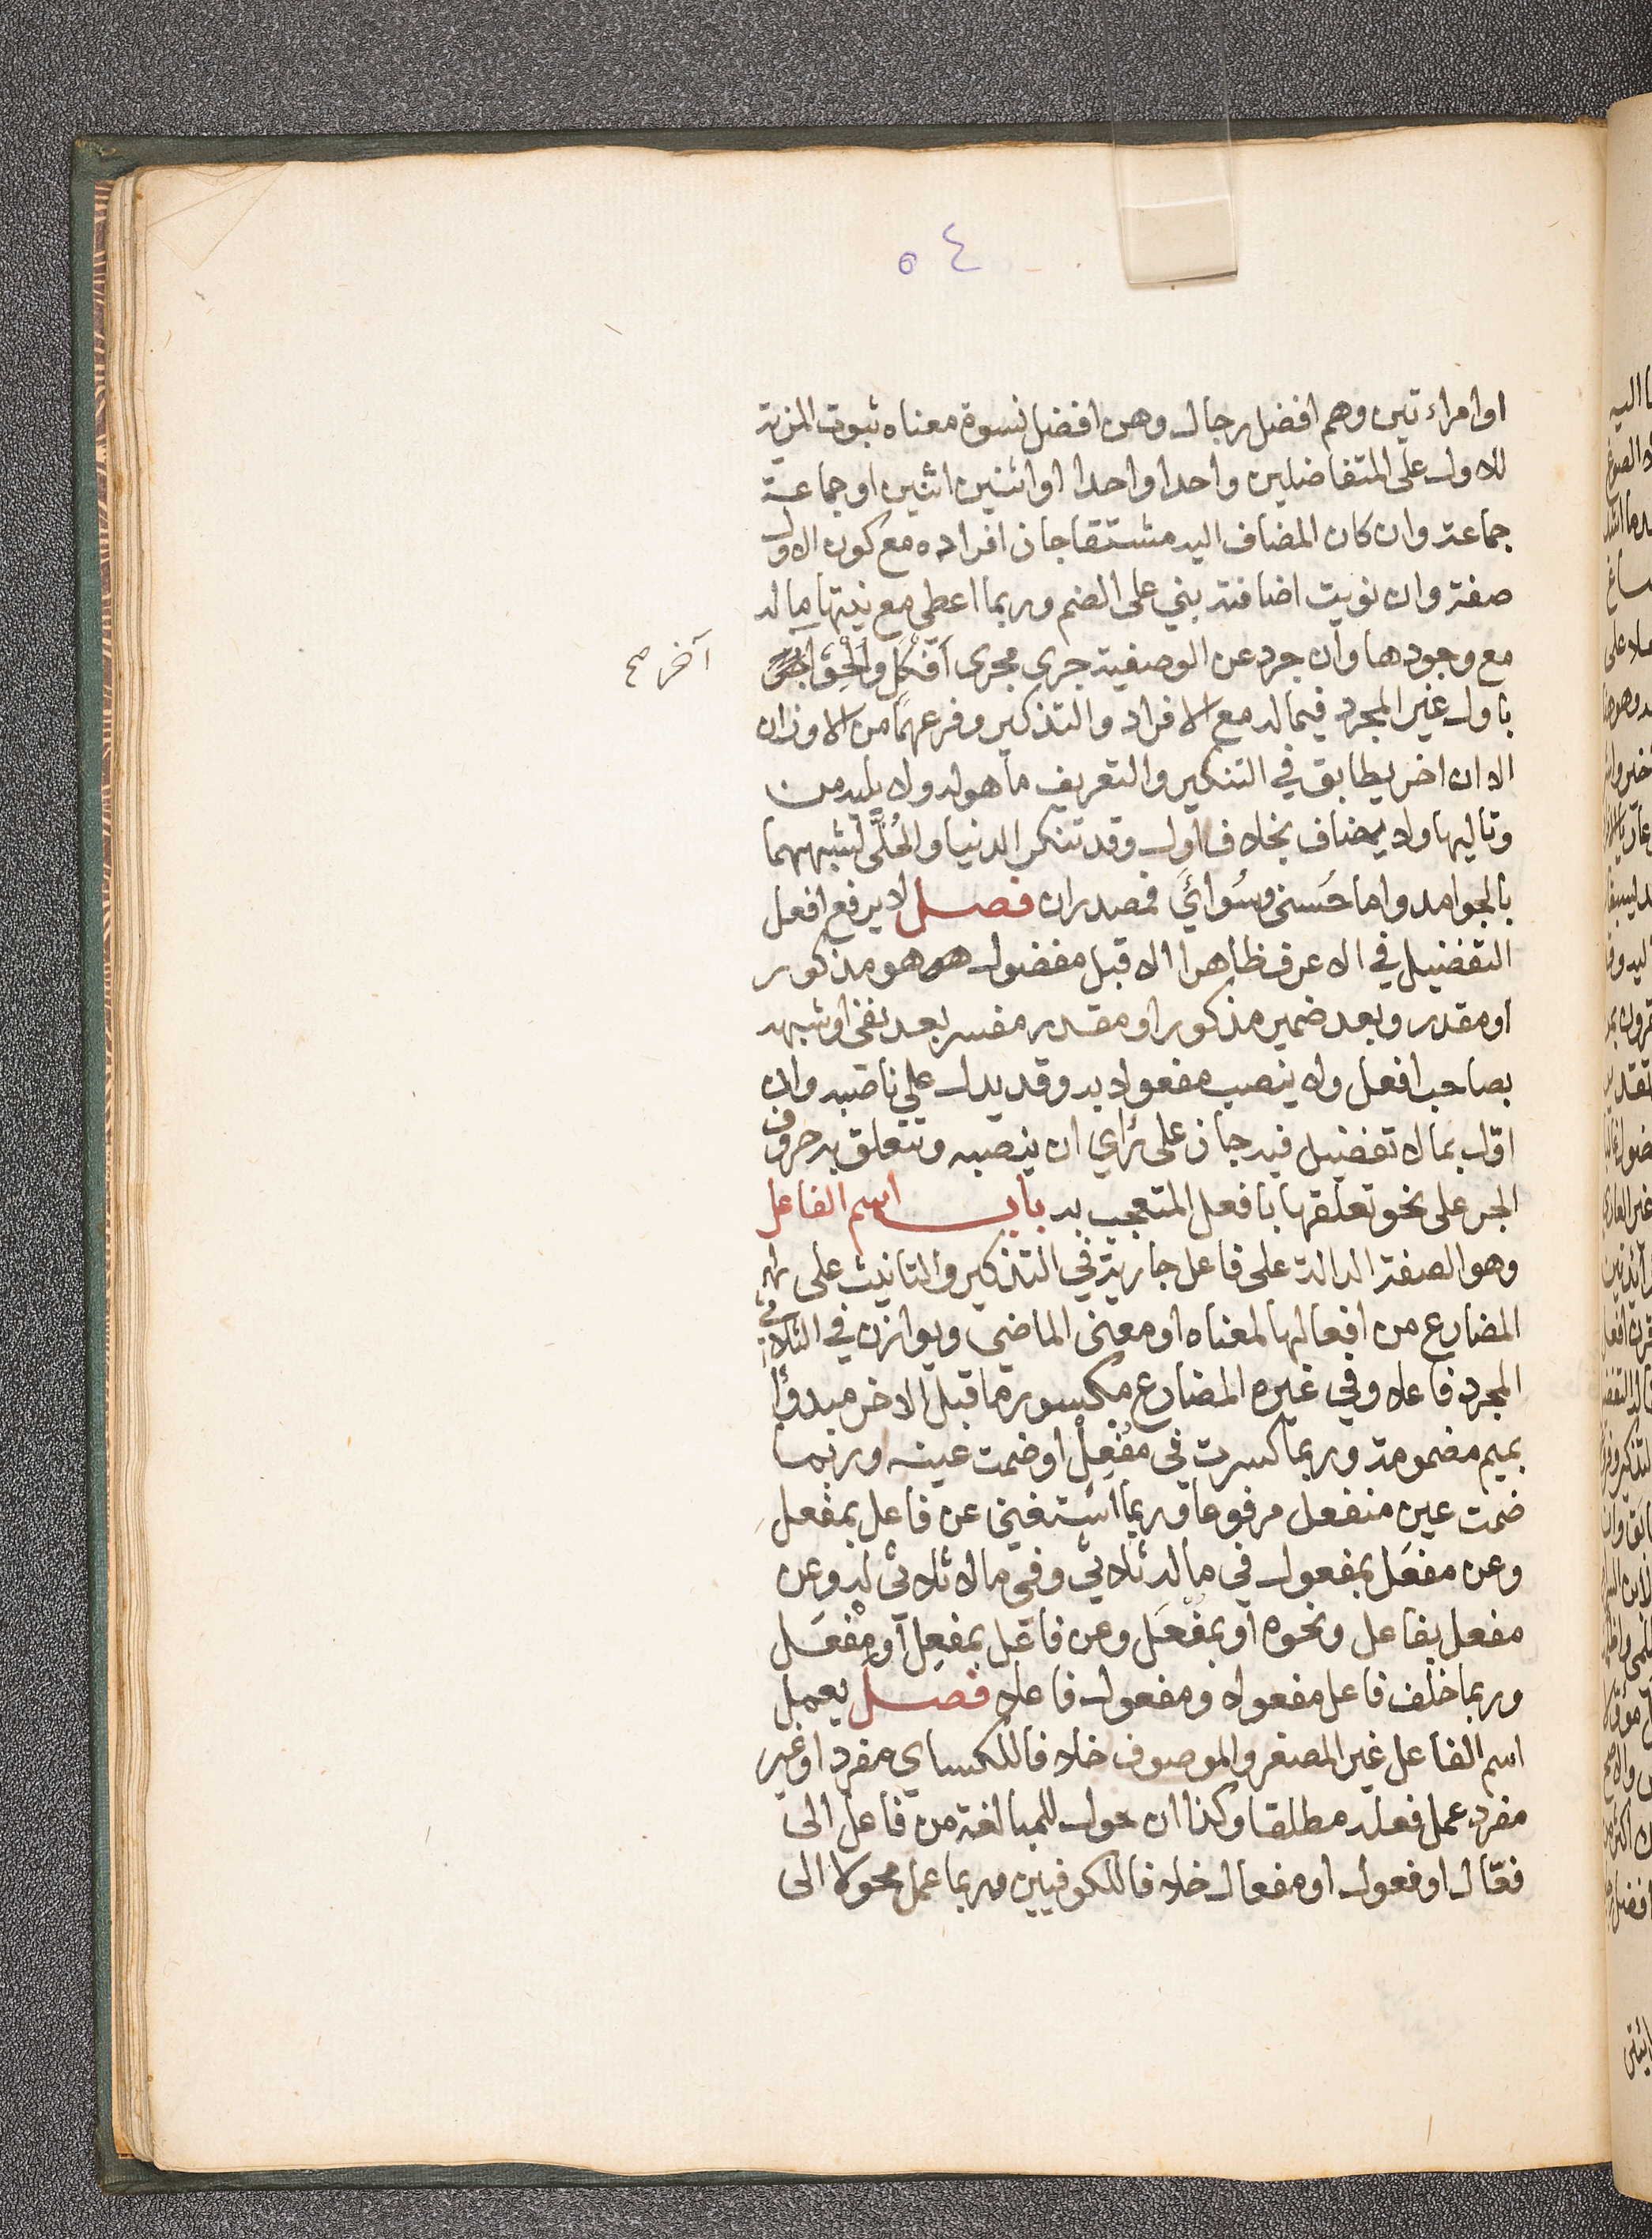 ٥٤
او امراءتين وهم افضل رجال وهن افضل نسوة معناه ثبوت المزية
للاول على المتفاضلين واحدا واحدا او اثنين اثنين او جماعة
جماعة وان كان المضاف اليه مشتقا جاز افراده مع كون الاول
صفة وان نويت اضافته بني على الضم وربما اعطي مع نيتها ما له
مع وجودها وان جرد عن الوصفية جرى مجرى اَفْكَلٍ واُلْحِقَ
آخر صح
باول غير المجرد فيما له مع الافراد والتذكير وفرعهما من الاوزان
الا ان اخر يطابق في التنكير والتعريف ما هوله ولا يليه من
وتاليها ولا يضاف بخلاف اول وقد تنكر الدنيا والجُلَّى لشبههما
بالجوامد واما حُسنى وسُوائَي فمصدران فصل لا يرفع افعل
التفضيل في الاعرف ظاهرا الا قبل مفضول هو هو مذكور
او مقدر وبعد ضمير مذكور او مقدر مفسر بعد نفي او شبهه
بصاحب افعل ولا ينصب مفعولا به وقد يدل على ناصبه وان
اول بما لا تفضيل فيه جاز على رأي ان ينصبه وتتعلق به حروف
الجر على نحو تعلقها بافعل المتعجب به باب اسم الفاعل
وهو الصفة الدالة على فاعل جارية في التذكير والتانيث على
المضارع من افعالها لمعناه او معنى الماضي ويوازن في الثلاثي
المجرد فاعلا وفي غيره المضارع مكسورة ما قبل الاخر مبدوًّا
بميم مضمومة وربما كسرت في مُفْعِل او ضمت عينه وربما
ضمت عين منفعل مرفوعا وربما استغنى عن فاعل بمفعل
وعن مفعَل بمفعول في ما له ثلاثي وفي ما لا ثلاثي له وعن
مفعل بفاعل ونحوه او بمُفْعَل وعن فاعل بمفعِل او مِفْعَل
وربما خلف فاعل مفعولا ومفعول فاعلا فصل يعمل
اسم الفاعل غير المصغر والموصوف خلافا للكساي مفرد او غير
مفرد عمل فعله مطلقا وكذا ان حول للمبالغة من فاعل الى
فعّال او فعول او مفعال خلافا للكوفيين وربما عمل محولا الى